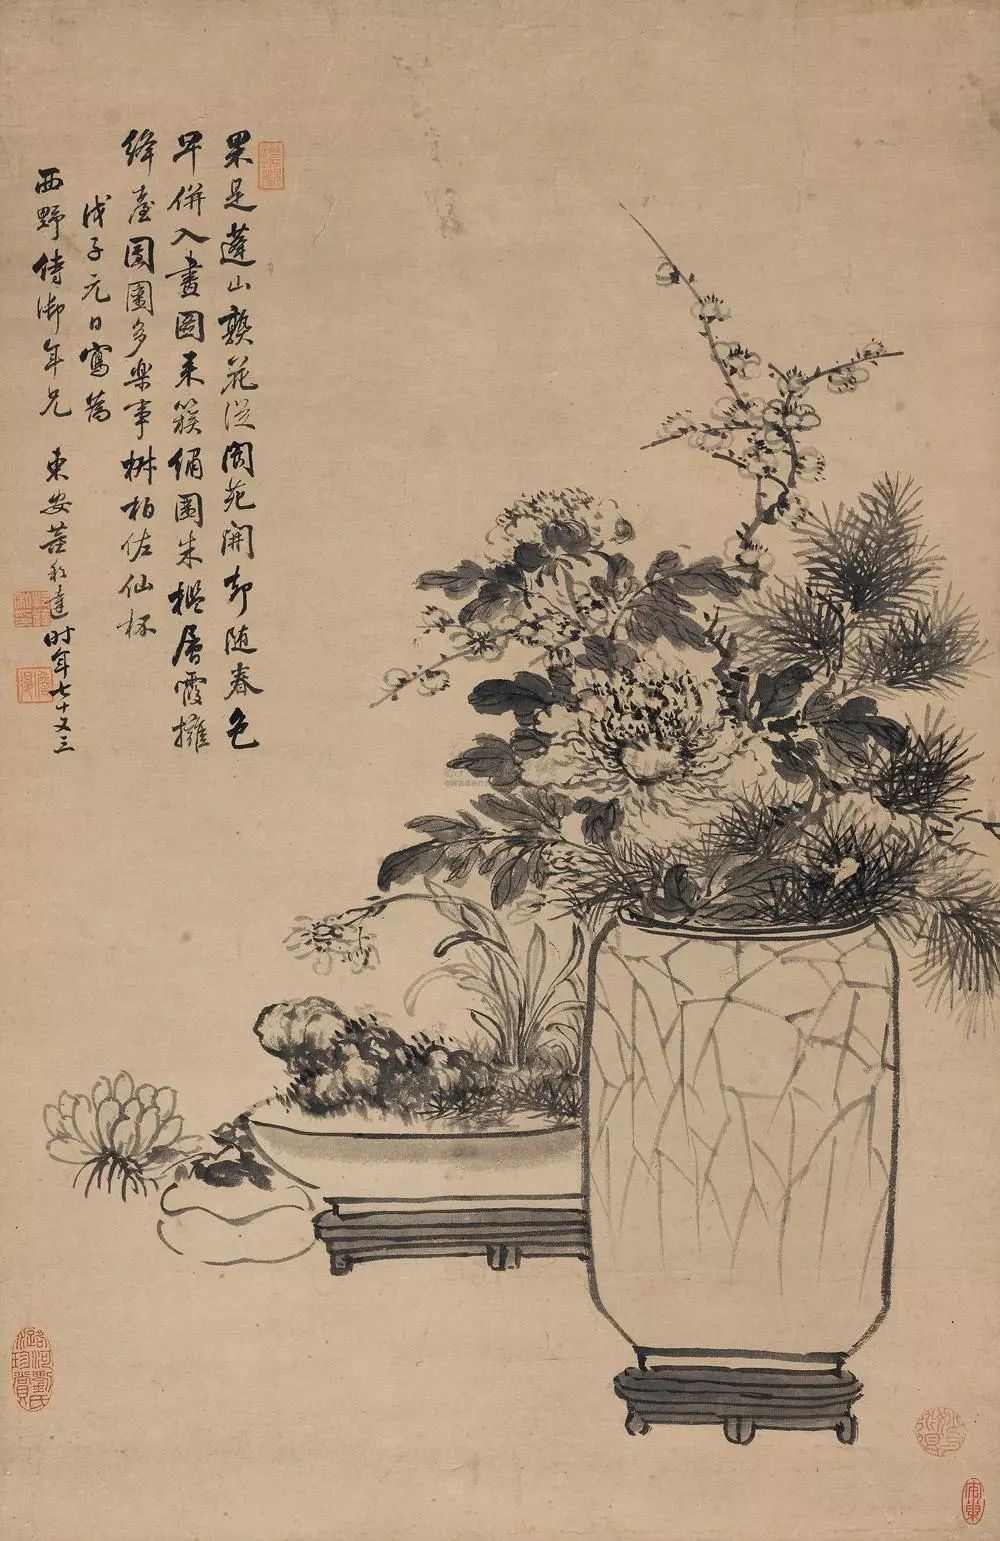 果是蓬山花從閬苑開却随春色
早併入畫圖来簇圍朱檻層霞擁
絳臺團圞多樂事椒柏佐仙杯
戊子元日寫為
西野侍御年兄 東安達時年七十又三
潞河劉氏